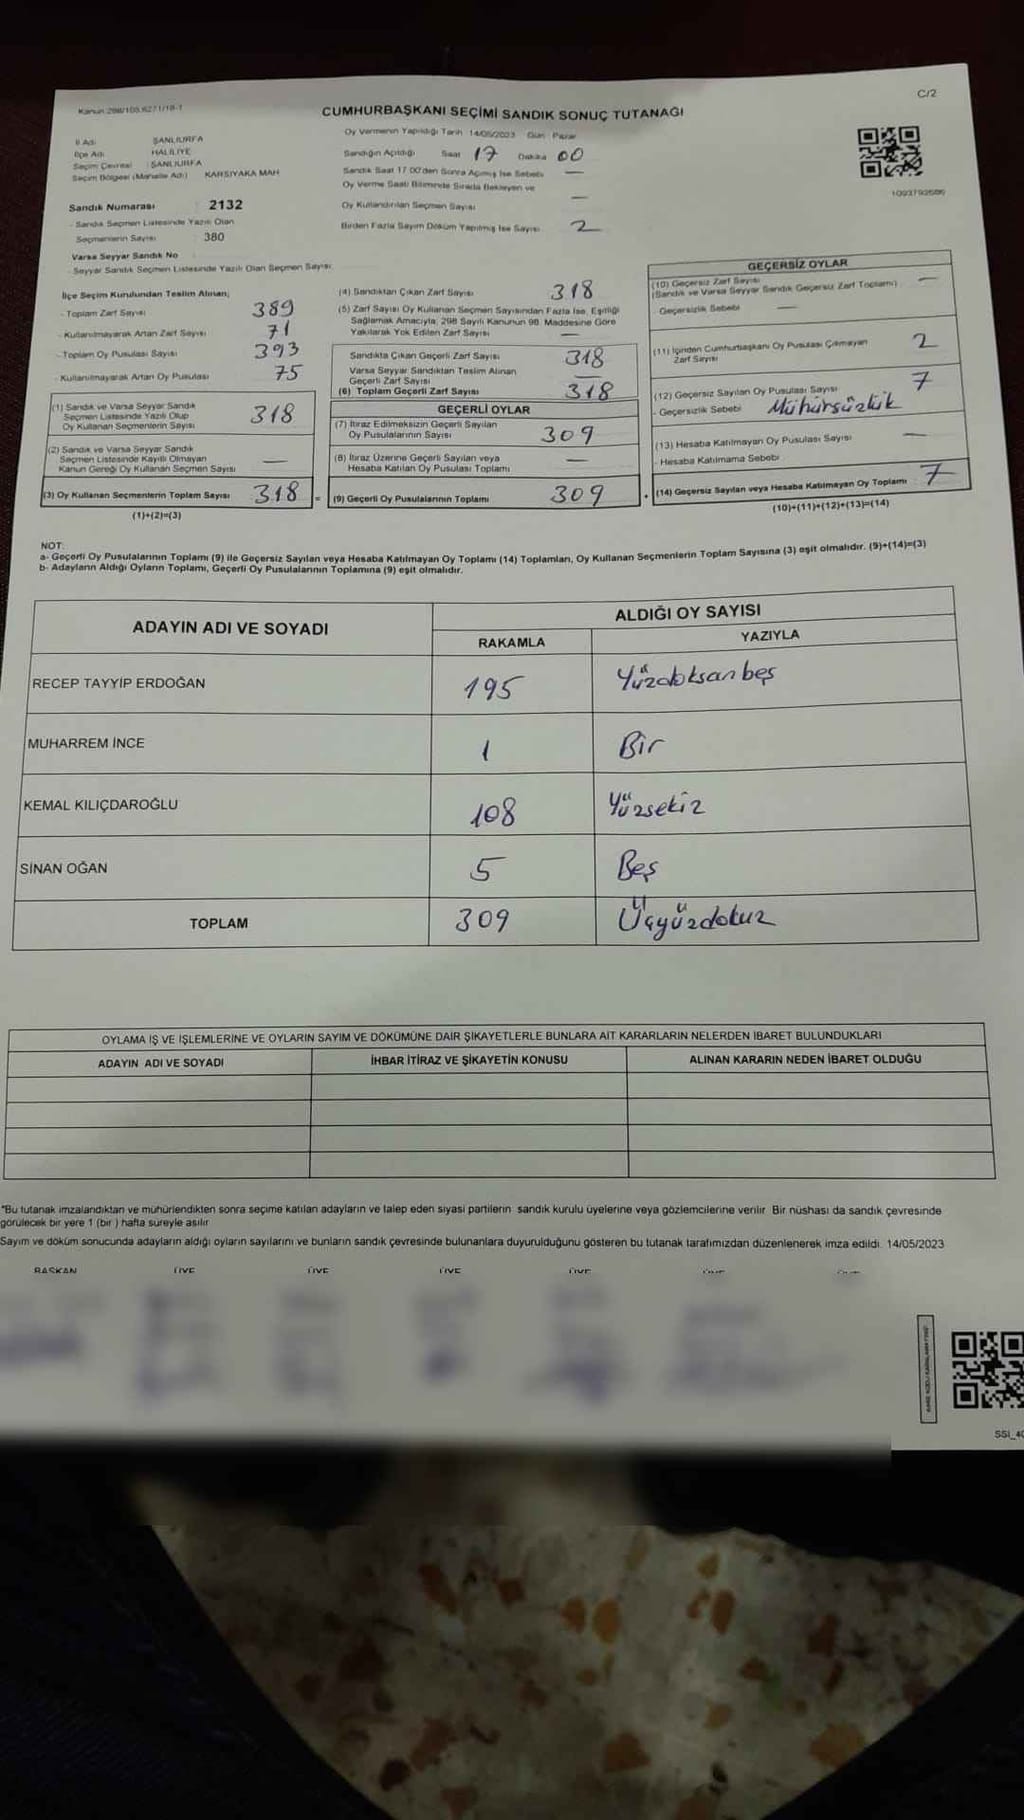 Kanun:298/105,6271/18-1
C/2
CUMHURBAŞKANI SEÇİMİ SANDIK SONUÇ TUTANAĞI
Oy Vermenin Yapıldığı Tarih 14/05/2023 Gün: Pazar
İl Adı : ŞANLIURFA
İlçe Adı : HALİLİYE
Seçim Çevresi : ŞANLIURFA
Seçim Bölgesi (Mahalle Adı) : KARŞIYAKA MAH
Sandık Numarası : 2132
- Sandık Seçmen Listesinde Yazılı Olan
Seçmenlerin Sayısı : 380
Varsa Seyyar Sandık No
- Seyyar Sandık Seçmen Listesinde Yazılı Olan Seçmen Sayısı:
Sandığın Açıldığı Saat 17 Dakika 00
Sandık Saat 17.00'den Sonra Açılmış İse Sebebi —
Oy Verme Saati Bitiminde Sırada Bekleyen ve
Oy Kullandırılan Seçmen Sayısı —
Birden Fazla Sayım Döküm Yapılmış İse Sayısı 2
İlçe Seçim Kurulundan Teslim Alınan;
- Toplam Zarf Sayısı 389
- Kullanılmayarak Artan Zarf Sayısı 71
- Toplam Oy Pusulası Sayısı 393
- Kullanılmayarak Artan Oy Pusulası 75
(1) Sandık ve Varsa Seyyar Sandık
Seçmen Listesinde Yazılı Olup
Oy Kullanan Seçmenlerin Sayısı 318
(2) Sandık ve Varsa Seyyar Sandık
Seçmen Listesinde Kayıtlı Olmayan
Kanun Gereği Oy Kullanan Seçmen Sayısı —
(3) Oy Kullanan Seçmenlerin Toplam Sayısı 318 =
(1)+(2)=(3)
(4) Sandıktan Çıkan Zarf Sayısı 318
(5) Zarf Sayısı Oy Kullanan Seçmen Sayısından Fazla İse, Eşitliği
Sağlamak Amacıyla; 298 Sayılı Kanunun 98. Maddesine Göre
Yakılarak Yok Edilen Zarf Sayısı —
Sandıkta Çıkan Geçerli Zarf Sayısı 318
Varsa Seyyar Sandıktan Teslim Alınan
Geçerli Zarf Sayısı —
(6) Toplam Geçerli Zarf Sayısı 318
GEÇERLİ OYLAR
(7) İtiraz Edilmeksizin Geçerli Sayılan
Oy Pusulalarının Sayısı 309
(8) İtiraz Üzerine Geçerli Sayılan veya
Hesaba Katılan Oy Pusulası Toplamı —
(9) Geçerli Oy Pusulalarının Toplamı 309 +
1093792686
GEÇERSİZ OYLAR
(10) Geçersiz Zarf Sayısı
(Sandık ve Varsa Seyyar Sandık Geçersiz Zarf Toplamı) —
Geçersizlik Sebebi —
(11) İçinden Cumhurbaşkanı Oy Pusulası Çıkmayan
Zarf Sayısı 2
(12) Geçersiz Sayılan Oy Pusulası Sayısı 7
- Geçersizlik Sebebi Mühürsüzlük
(13) Hesaba Katılmayan Oy Pusulası Sayısı —
- Hesaba Katılmama Sebebi
(14) Geçersiz Sayılan veya Hesaba Katılmayan Oy Toplamı 7
(10)+(11)+(12)+(13)=(14)
NOT:
a- Geçerli Oy Pusulalarının Toplamı (9) ile Geçersiz Sayılan veya Hesaba Katılmayan Oy Toplamı (14) Toplamları, Oy Kullanan Seçmenlerin Toplam Sayısına (3) eşit olmalıdır. (9)+(14)=(3)
b- Adayların Aldığı Oyların Toplamı, Geçerli Oy Pusulalarının Toplamına (9) eşit olmalıdır.
ADAYIN ADI VE SOYADI ALDIĞI OY SAYISI
RAKAMLA YAZIYLA
RECEP TAYYİP ERDOĞAN 195 Yüzdoksanbeş
MUHARREM İNCE 1 Bir
KEMAL KILIÇDAROĞLU 108 Yüzsekiz
SİNAN OĞAN 5 Beş
TOPLAM 309 Üçyüzdokuz
OYLAMA İŞ VE İŞLEMLERİNE VE OYLARIN SAYIM VE DÖKÜMÜNE DAİR ŞİKAYETLERLE BUNLARA AİT KARARLARIN NELERDEN İBARET BULUNDUKLARI
ADAYIN ADI VE SOYADI İHBAR İTİRAZ VE ŞİKAYETİN KONUSU ALINAN KARARIN NEDEN İBARET OLDUĞU
*Bu tutanak imzalandıktan ve mühürlendikten sonra seçime katılan adayların ve talep eden siyasi partilerin sandık kurulu üyelerine veya gözlemcilerine verilir. Bir nüshası da sandık çevresinde
görülecek bir yere 1 (bir ) hafta süreyle asılır
Sayım ve döküm sonucunda adayların aldığı oyların sayılarını ve bunların sandık çevresinde bulunanlara duyurulduğunu gösteren bu tutanak tarafımızdan düzenlenerek imza edildi. 14/05/2023
BAŞKAN ÜYE ÜYE ÜYE ÜYE ÜYE ÜYE
SSI_40